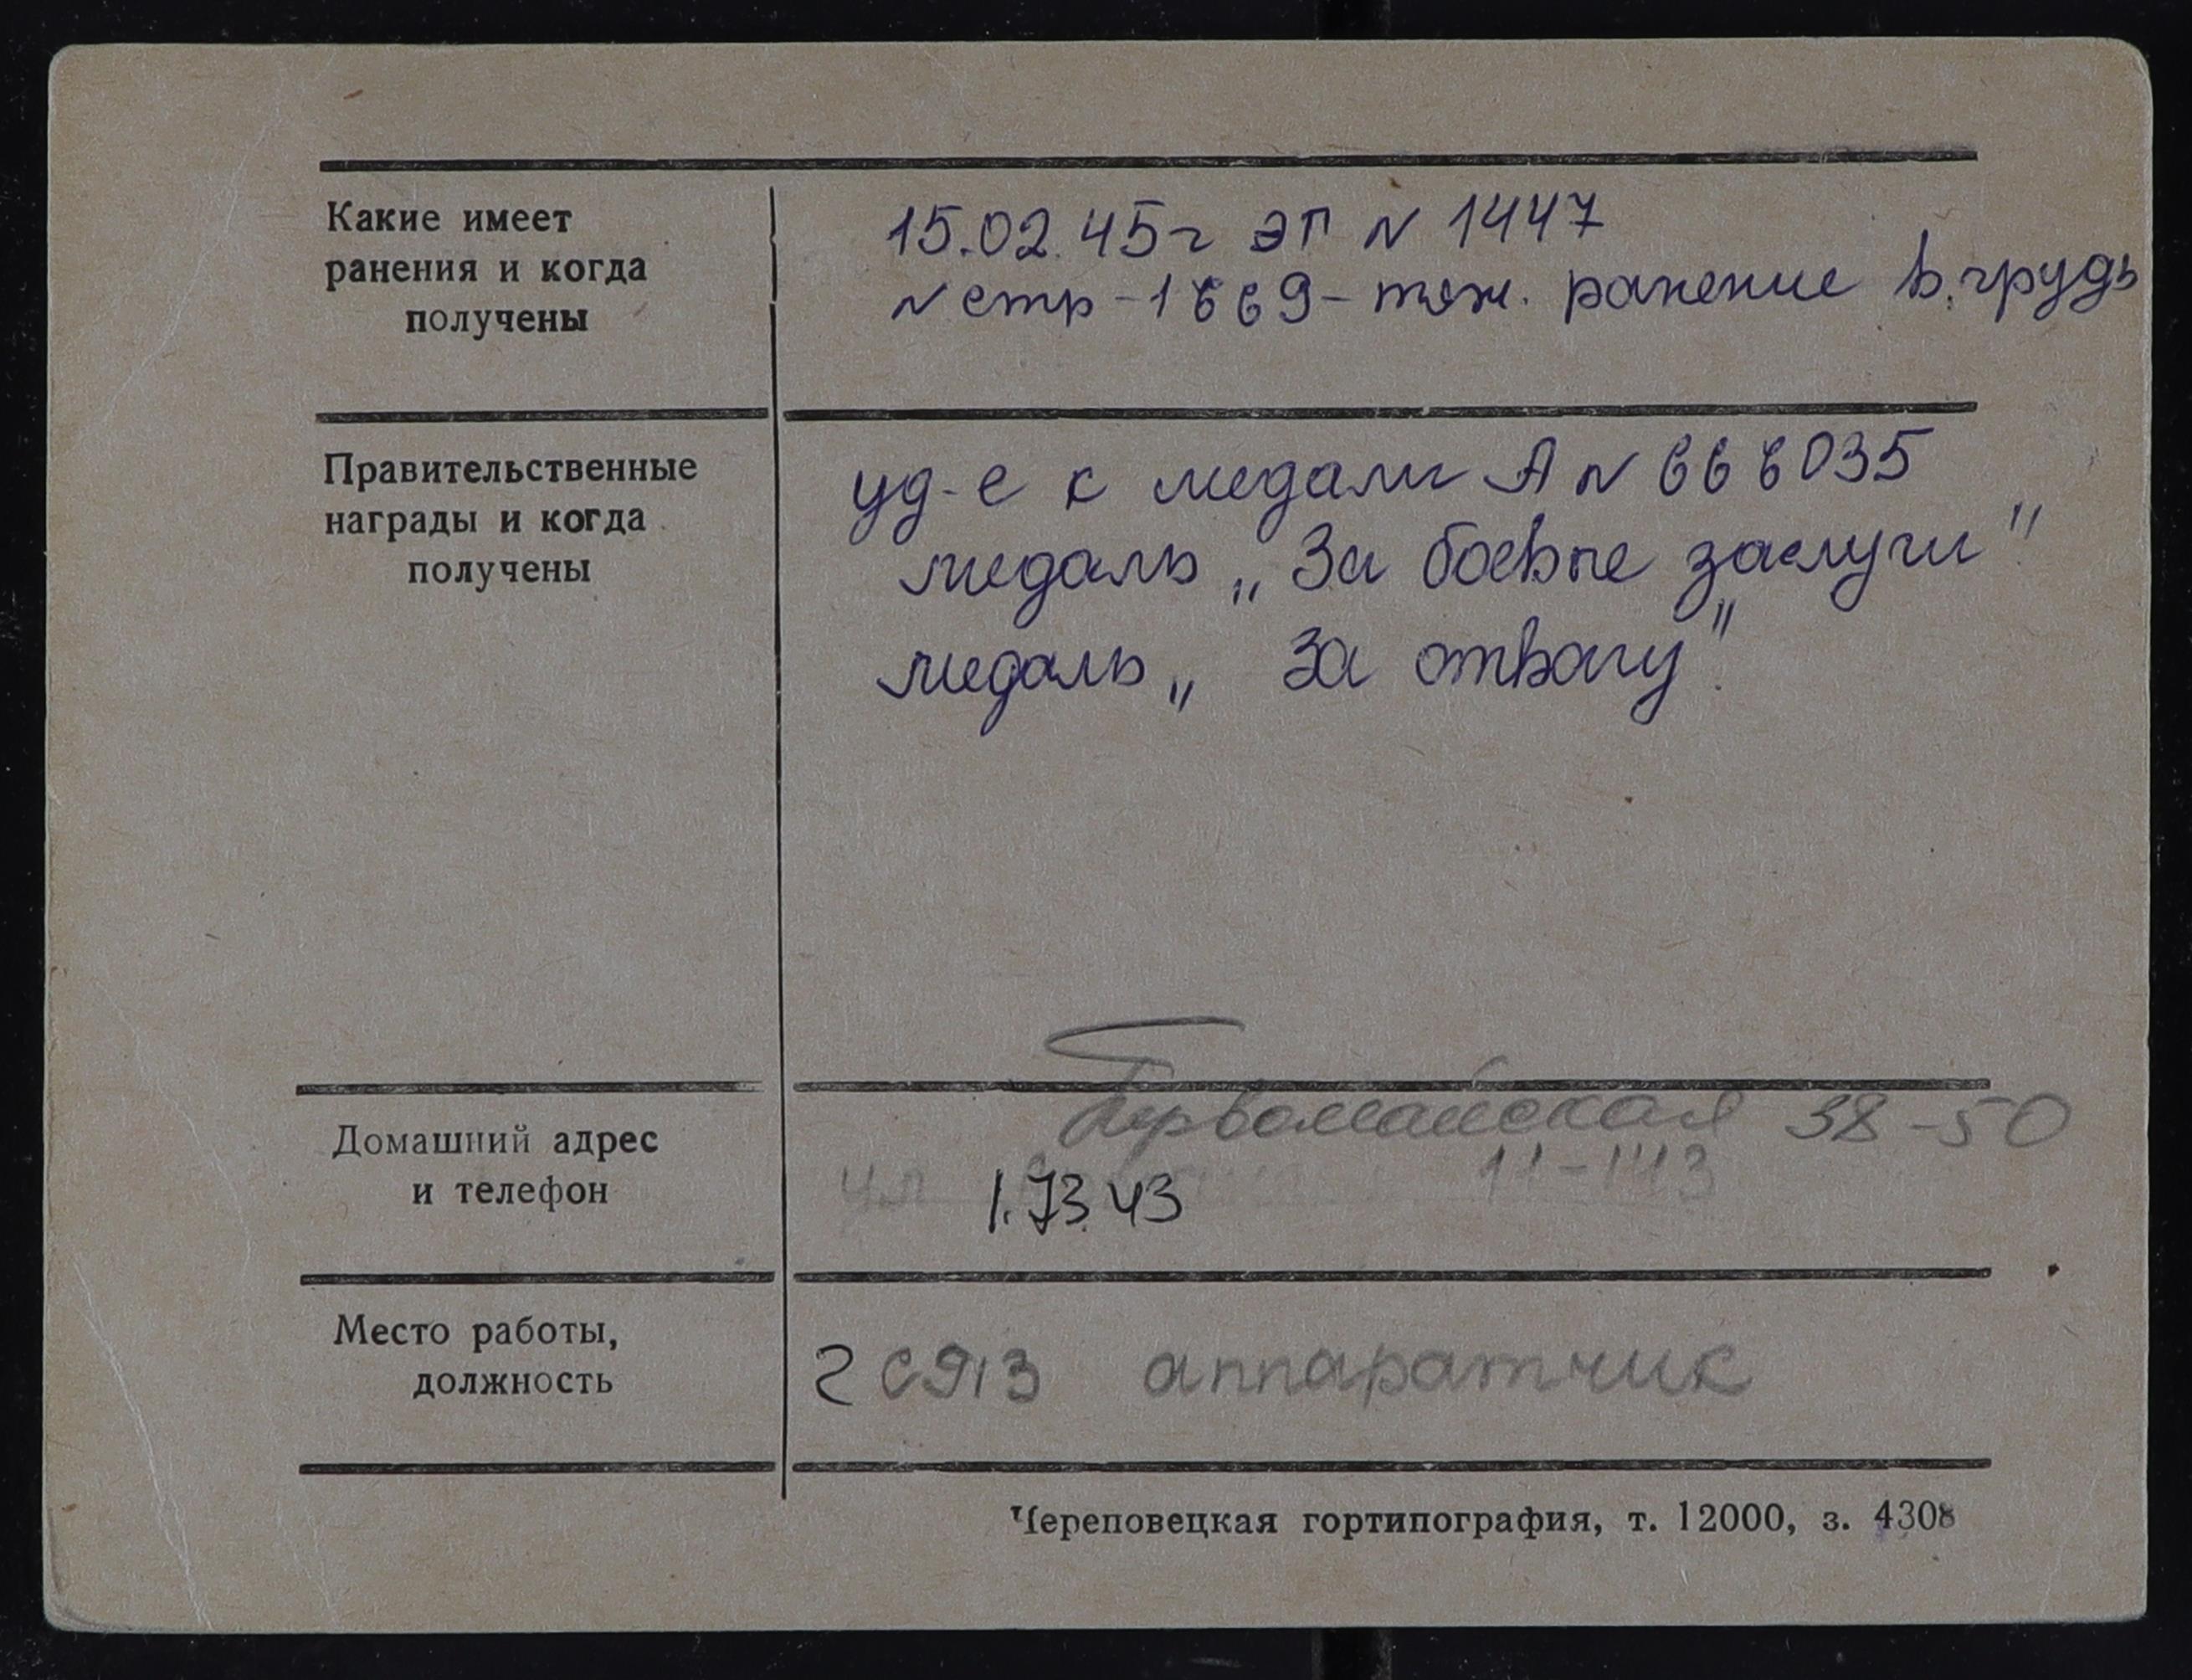 Какие имеет
ранения и когда
получены
15.02.45г ЭГ N 1447
N стр-1669- тяж. ранение в грудь
Правительственные
награды и когда
получены
уд-е к медали А N 666035
медаль „За боевые заслуги"
медаль „За отвагу".
Домашний адрес
и телефон
Первомайская 38-50
ул 11-143
1.73.43
Место работы,
должность
аппаратчик
Череповецкая гортипография, т. 12000, з. 4308